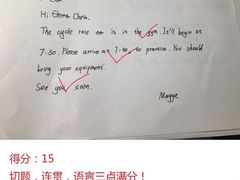 Hi Chris.
The cycle race is in the gym. It'll begin at
7:50. Please arrive at 7:40 to promise. You should
bring your equipment.
See you soon.
Maggie
得分：15
切题，连贯，语言三点满分！